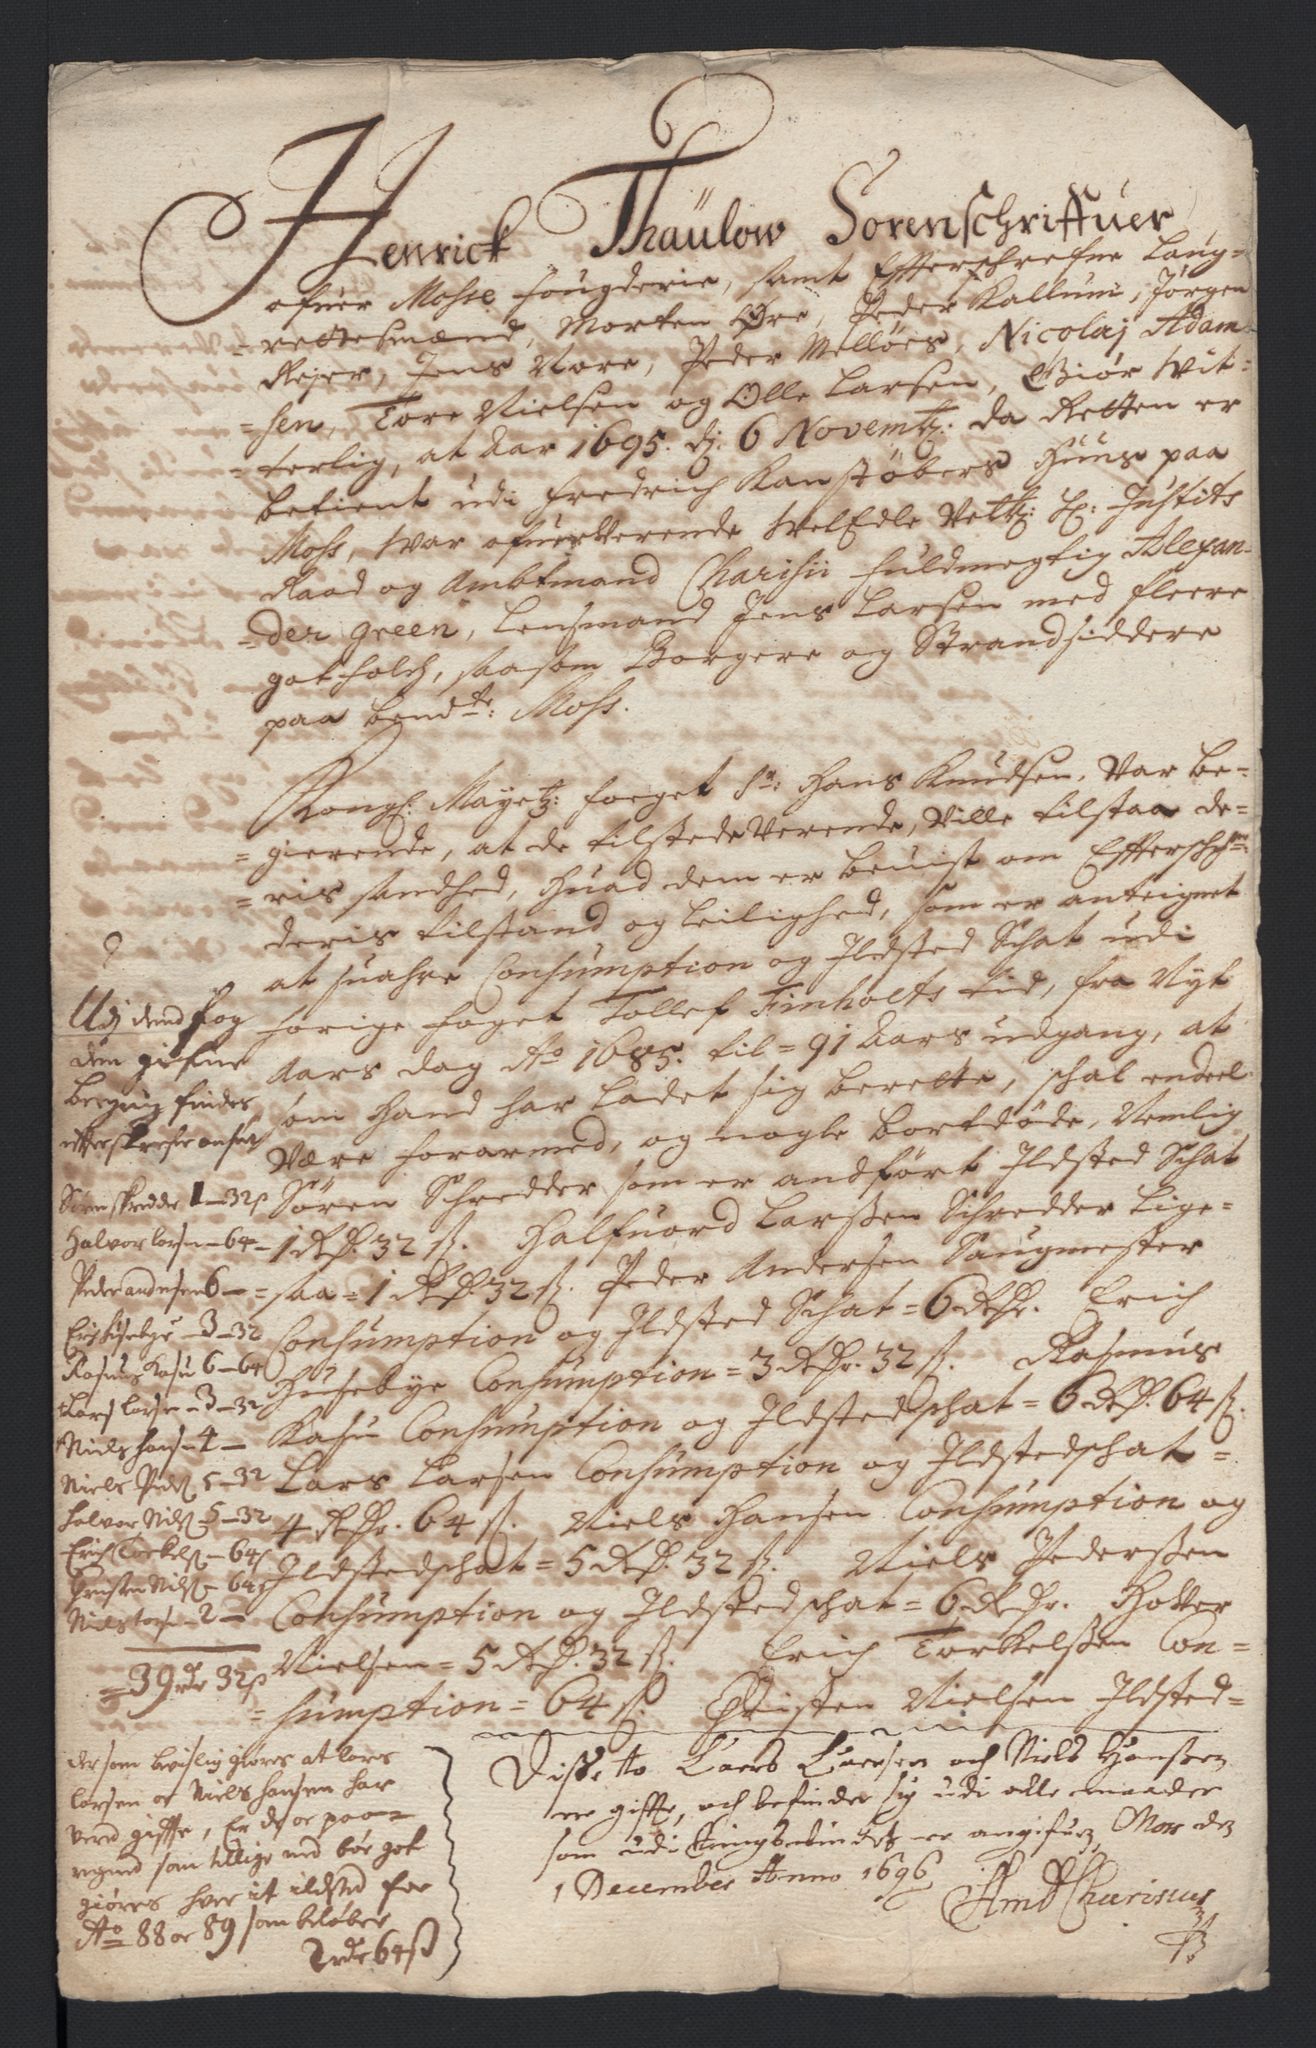 Henrick Thaulow Sorenschriffuer
ofuer Mosse fougderie, samt Effterschrefne Laug-
=rettesmænd, Morten Øre, Peder Kallum, Jørgen
Rejer, Jens Nore, Peder Melløes, Nicolaj Adam-
=sen, Tore Nielsen og Olle Larsen, Giør Wit-
=terlig, at Aar 1695. dj. 6 Novembr: da Retten er
betient udi Fredrich Kanstøbers Huus paa
Moss, war ofuerverende WelEdle Hr: Justits
Raad og Ambtmand Charisii fuldmegtig Alexan-
=der Green, Lensmand Jens Larsen med fleere
got folch, saasom Borgere og Strandsiddere
paa bemdte: Moss.
Kongl: Mayetz: foeget Sr: Hans Knudsen, Var be-
=gierende, at de tilstedeVerende, Ville tilstaa de-
=ris sandhed, huad dem er beuist om Effterschrne
deris tilstand og leilighed, som er anteignet
at suahre Consumption og Ildsted Schat udi
forige foget Tollef Finholts tid, fra Nyt
Aars dag Ao 1685. til = 91 Aars udgang, at
som hand har ladet sig berette, schal endeel
Være forarmed, og nogle bortdøde, Nemlig
Søren Schredder som er andført Ildsted Schat
1 Rdr. 32 ß. Halfuord Larssen Schredder lige-
=saa = 1 Rdr. 32 ß. Peder Andersen Saugmester
Consumption og Ildsted Schat = 6 Rdr. Erich
Husebye Consumption = 3 Rdr. 32 ß. Rasmus
Kasu Consumption og Ildstedschat = 6 Rdr. 64 ß.
Lars Larsen Consumption og Ildstedschat =
4 Rdr. 64 ß. Niels Hansen Consumption og
Ildstedschat = 5 Rdr. 32 ß. Niels Pederssen
Consumption og Ildstedschat = 6 Rdr. Hover
Nielsen = 5 Rdr. 32 ß. Erich Torkelssen Con-
=sumption = 64 ß. Christen Nielsen Ildsted=
Udj dend fog
dem gifne
findes
efterskrefne anført
Søren skredder 1 - 32 ß
Halvor larsen - 64 -
Peder andersen 6 -
Erich husebye - 3 - 32
Rasmus Kasu 6 - 64
Lars larsen - 3 - 32
Niels hans - 4 -
Niels Peders 5 - 32
Halvor Nils - 5 - 32
Erich Torkels - 64 ß
Christen Nils - 64 ß
Niels tors - 2 -
= 39 rdr 32 ß
der som bevislig giøres at lars
larsen oc Niels hansen har
verd gifft, Er de oc paa
regned som tillige med bør got
giøres hver it ildsted for
Ao 88 oc 89 som beløber
2 rdr 64 ß
Disse to Laers Laersen och Niels Hansen
er giffte, och befinder sig udi alle maader
som udi tingsvindet er angifuen, Mos den
1 December Anno 1696
Amd Charisius